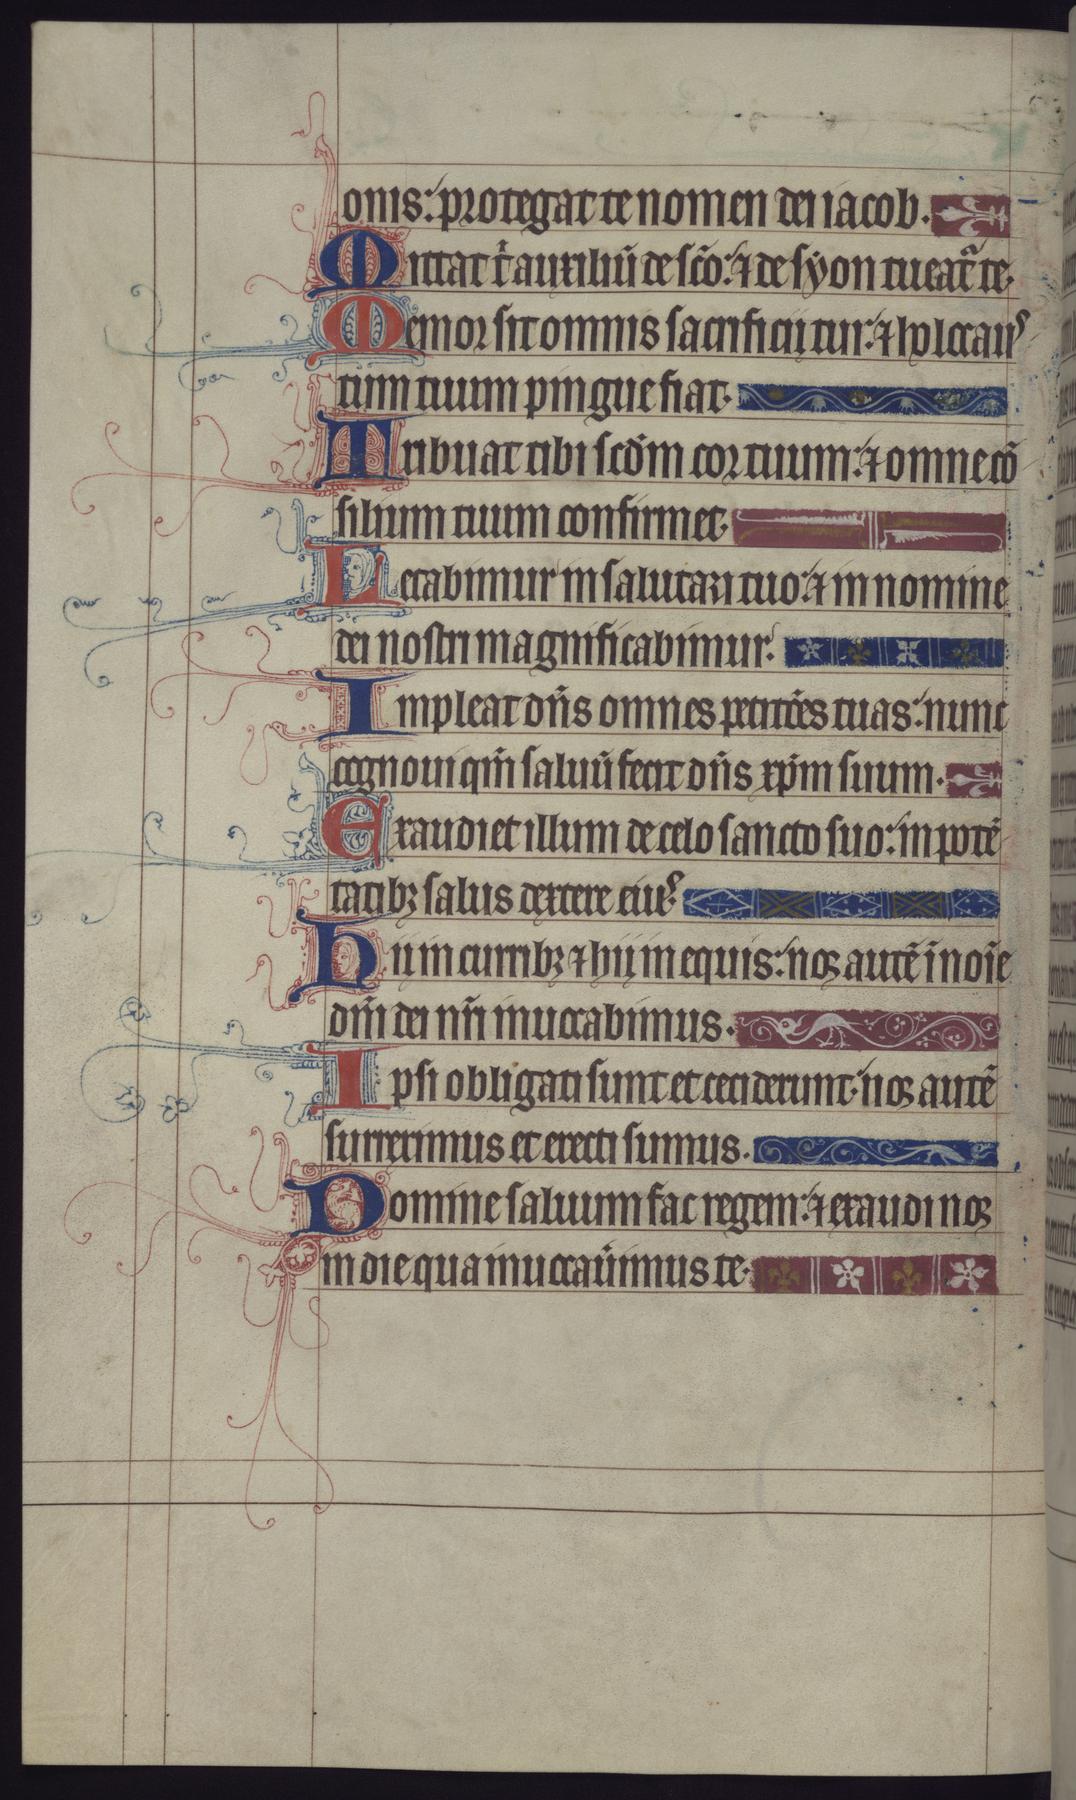 onis: protegat te nomen dei iacob.
Mittat t̾ auxiliū de sc̄o: ⁊ de syon tueat᷑ te.
Memor sit omnis sacrificij tui: ⁊ holocauſ
tum tuum pingue fiat.
Tribuat tibi scd̄m cor tuum: ⁊ omne cō
silium tuum confirmet.
Letabimur in salutari tuo: ⁊ in nomine
dei nostri magnificabimur.
Impleat dn̄s omnes petitōes tuas: nunc
cognoui qm̄ saluū fecit dn̄s xp̄m suum.
Exaudiet illum de celo sancto suo: in potē
tatibꝫ salus dextere eiuſ
Hij in curribꝫ ⁊ hij in equis: nos autē ī noīe
dn̄i dei nr̄i inuocabimus.
Ipsi obligati sunt et ceciderunt. nos autē
surreximus et erecti sumus.
Domine saluum fac regem: ⁊ exaudi nos
in die qua inuocau̾imus te.